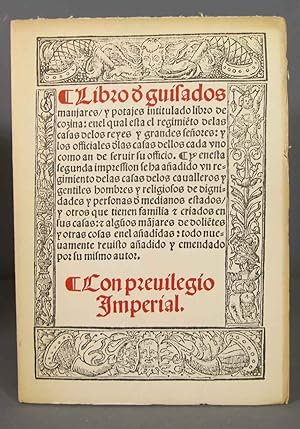 ¶ Libro d̓ guisados
manjares / y potajes intitulado libro de
cozina: enel qual esta el regimiẽto delas
casas delos reyes y grandes señores: y
los officiales d̓las casas dellos cada vno
como an de seruir su officio. ¶ Y enesta
segunda impression se ha añadido vn re-
gimiento delas casas delos caualleros y
gentiles hombres y religiosos de digni-
dades y personas d̓ medianos estados /
y otros que tienen familia ⁊ criados en
sus casas: ⁊ algũos mãjares de doliẽtes
y otras cosas enel añadidas: todo nue-
uamente reuisto añadido y emendado
por su mismo autor.
¶ Con preuilegio
Imperial.